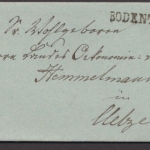 BODENT
Sr. Wohlgeboren
Herrn Landes Oekonomie
Hemmelmann
in
Uelze